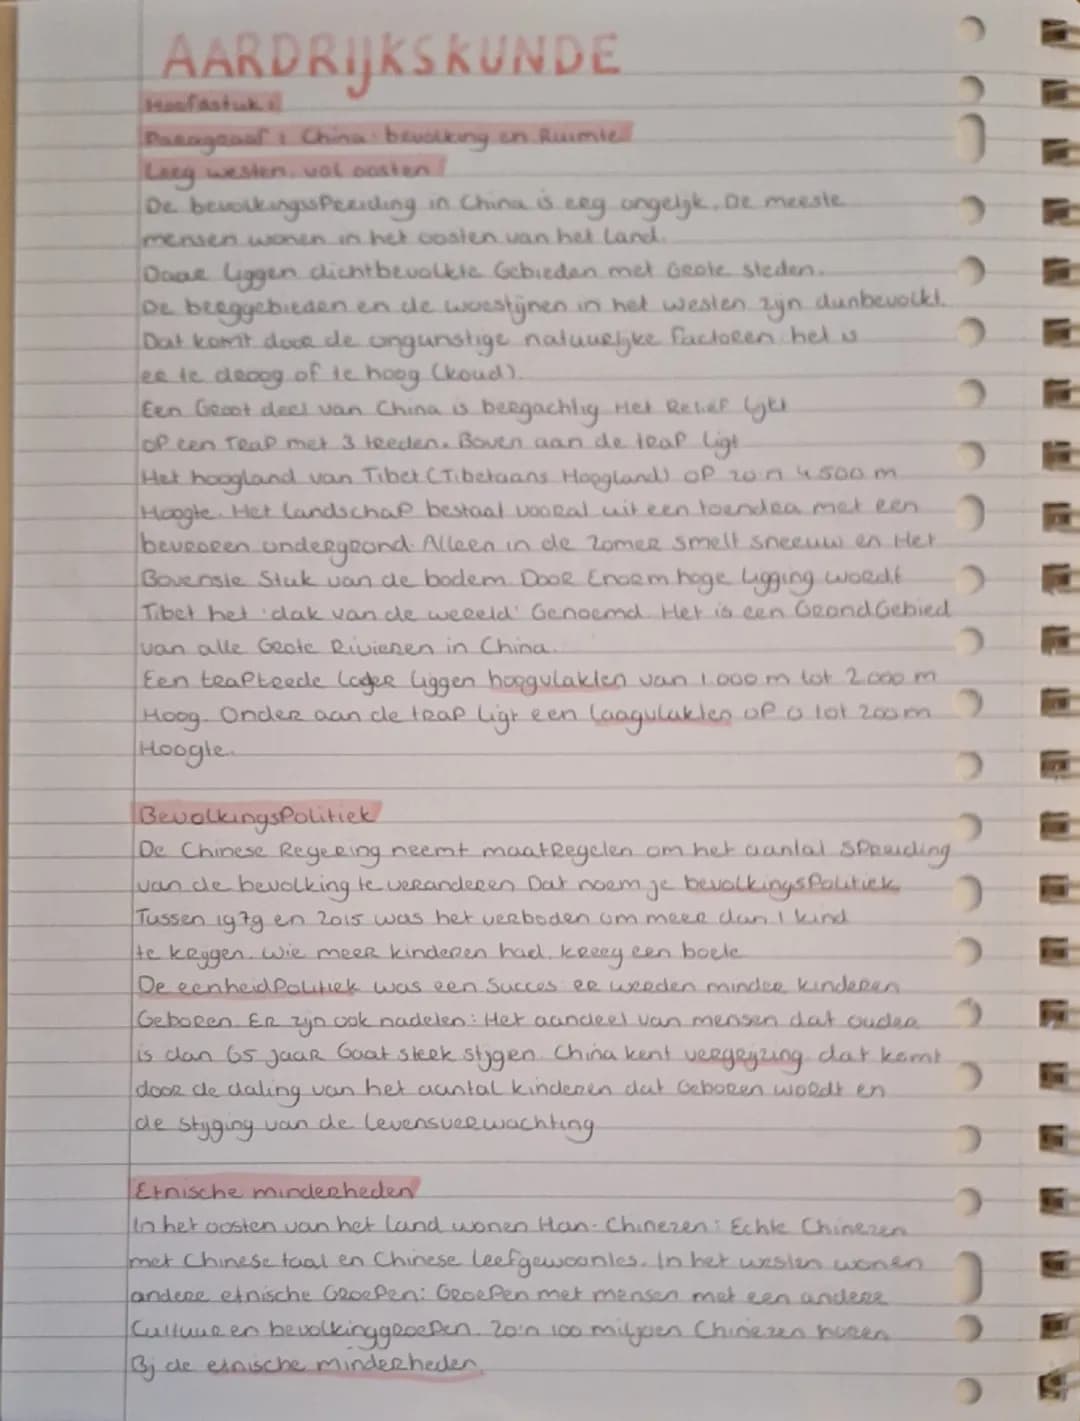 AARDRIJKSKUNDE
Hoofdstuk 1
Paragraaf 1 China: bevolking en Ruimte
Leeg westen, vol oosten
De bevolkingsspreiding in China is erg ongelijk. De meeste
mensen wonen in het oosten van het land.
Daar liggen dichtbevolkte Gebieden met Grote steden.
De berggebieden en de woestijnen in het westen zijn dunbevolkt.
Dat komt door de ongunstige natuurlijke factoren het is
er te droog of te hoog (koud).
Een Groot deel van China is bergachtig Het Relief lijkt
op een Trap met 3 treden. Boven aan de trap ligt
Het hoogland van Tibet (Tibetaans Hoogland) op zo'n 4500 m
Hoogte. Het landschap bestaat vooral uit een toendra met een
bevroren ondergrond. Alleen in de Zomer smelt sneeuw en Het
Bovenste Stuk van de bodem. Door Enorm hoge ligging wordt
Tibet het 'dak van de wereld' Genoemd. Het is een GrondGebied
van alle Grote Rivieren in China.
Een traptrede lager liggen hoogvlakten van 1.000 m tot 2.000 m
Hoog. Onder aan de trap ligt een laagvlakten op 0 tot 200 m
Hoogte.
BevolkingsPolitiek
De Chinese Regering neemt maatregelen om het aantal Spreiding
van de bevolking te veranderen Dat noem je bevolkingsPolitiek
Tussen 1979 en 2015 was het verboden om meer dan 1 kind
te krijgen. Wie meer kinderen had, kreeg een boete
De eenheidPolitiek was een Succes er werden minder kinderen
Geboren. Er zijn ook nadelen: Het aandeel van mensen dat ouder
is dan 65 jaar Gaat sterk stijgen. China kent vergrijzing dat komt
door de daling van het aantal kinderen dat Geboren wordt en
de stijging van de levensverwachting
Etnische minderheden
In het oosten van het land wonen Han-Chinezen: Echte Chinezen
met Chinese taal en Chinese leefgewoontes. In het westen wonen
andere etnische Groepen: Groepen met mensen met een andere
Cultuur en bevolkinggroepen. Zo'n 100 miljoen Chinezen horen
Bij de etnische minderheden.